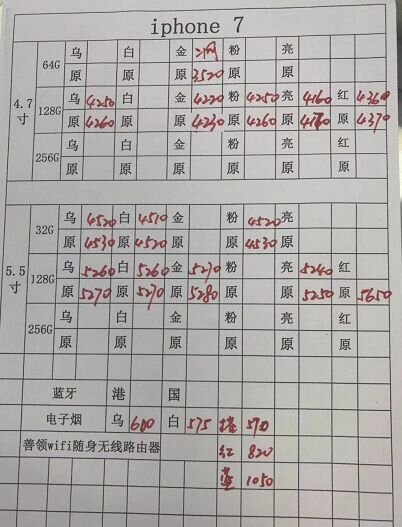 iphone 7
4.7寸 64G 乌 白 金 粉 亮
原 原 原 3520 原 原
128G 乌 4250 白 金 4220 粉 4250 亮 4160 红 4360
原 4260 原 原 4230 原 4260 原 4170 原 4370
256G 乌 白 金 粉 亮 红
原 原 原 原 原 原
5.5寸 32G 乌 4520 白 4510 金 粉 4520 亮
原 4530 原 4520 原 原 4530 原
128G 乌 5260 白 5260 金 5270 粉 亮 5240 红
原 5270 原 5270 原 5280 原 原 5250 原 5650
256G 乌 白 金 粉 亮 红
原 原 原 原 原 原
蓝牙 港 国
电子烟 乌 600 白 575 570
善领wifi随身无线路由器 红 820
1050